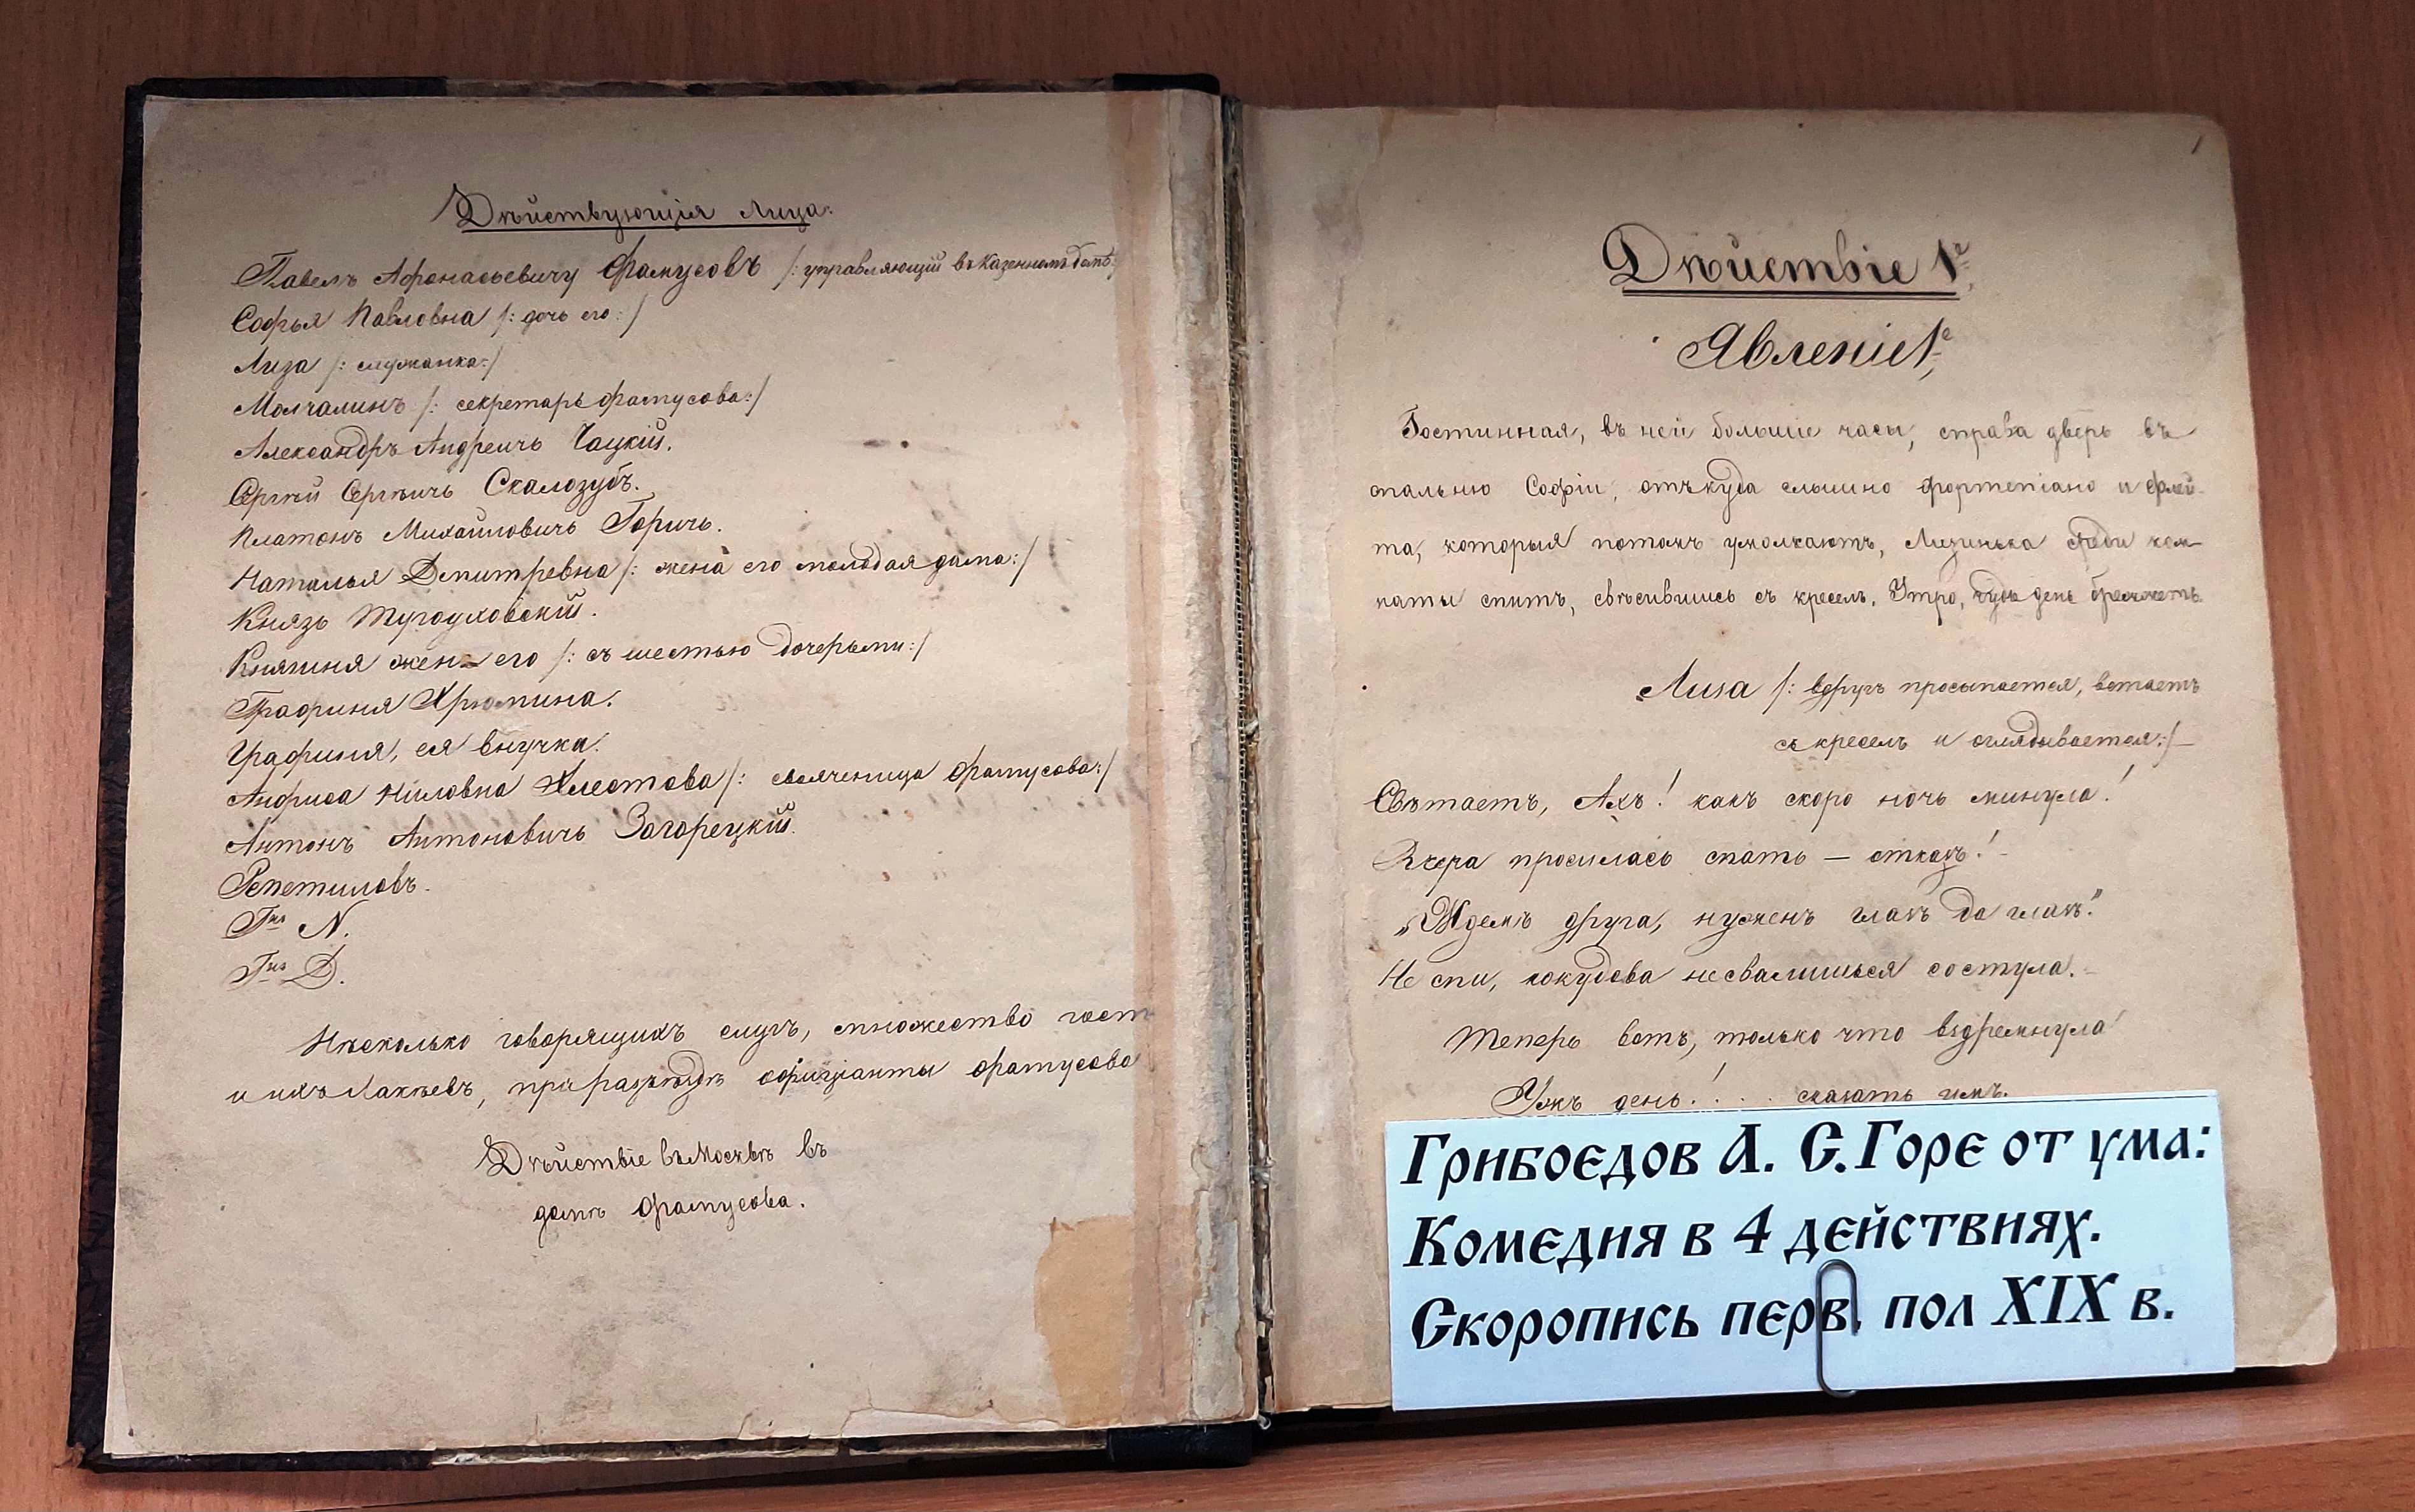 Дѣйствующія Лица.
Павелъ Афонасьевичу Фамусовъ /: управляющій въ казенномъ домѣ:/
Софья Павловна /: дочь его :/
Лиза /: служанка:/
Молчалинъ /: секретарь Фамусова:/
Александръ Андреичъ Чацкій.
Сергѣй Сергѣичь Скалозубъ.
Платонъ Михайловичь Горичь.
Наталья Дмитревна /: жена его молодая дама:/
Князь Тугоуховскій.
Княгиня жена его /: съ шестью дочерьми:/
Графиня Хрюмина.
Графиня, ея внучка.
Анфиса Ниловна Хлестова /: свояченица Фамусова:/
Антонъ Антоновичь Загорецкій.
Репетиловъ.
Гнъ N.
Гнъ D.
Нѣсколько говорящихъ слугъ, множество гост
и ихъ Лакѣевъ, при разъѣздѣ офиціанты Фамусова
Дѣйствіе въ Москвѣ въ
домѣ Фамусова.
1
Дѣйствіе 1е
Явленіе 1е
Гостинная, въ ней большіе часы, справа дверь въ
спальню Софіи, отъкуда слышно фортепіано и флей-
та, которыя потомъ умолкаютъ, Лизинька среди ком-
наты спитъ, свѣсившись съ креселъ. Утро, чуть день брежжетъ
Лиза /: вдругъ просыпается, встаетъ
съ креселъ и оглядывается:/
Свѣтаетъ, Ахъ! какъ скоро ночь минула!
Вчера просилась спать — отказъ!
„Ждемъ друга, нуженъ глазъ да глазъ."
Не спи, покудова несвалишься состула.
Теперь вотъ, только что вздремнула
Ужъ день! . . . сказать имъ.
Грибоедов А. С. Горе от ума:
Комедия в 4 действиях.
Скоропись перв. пол XIX в.